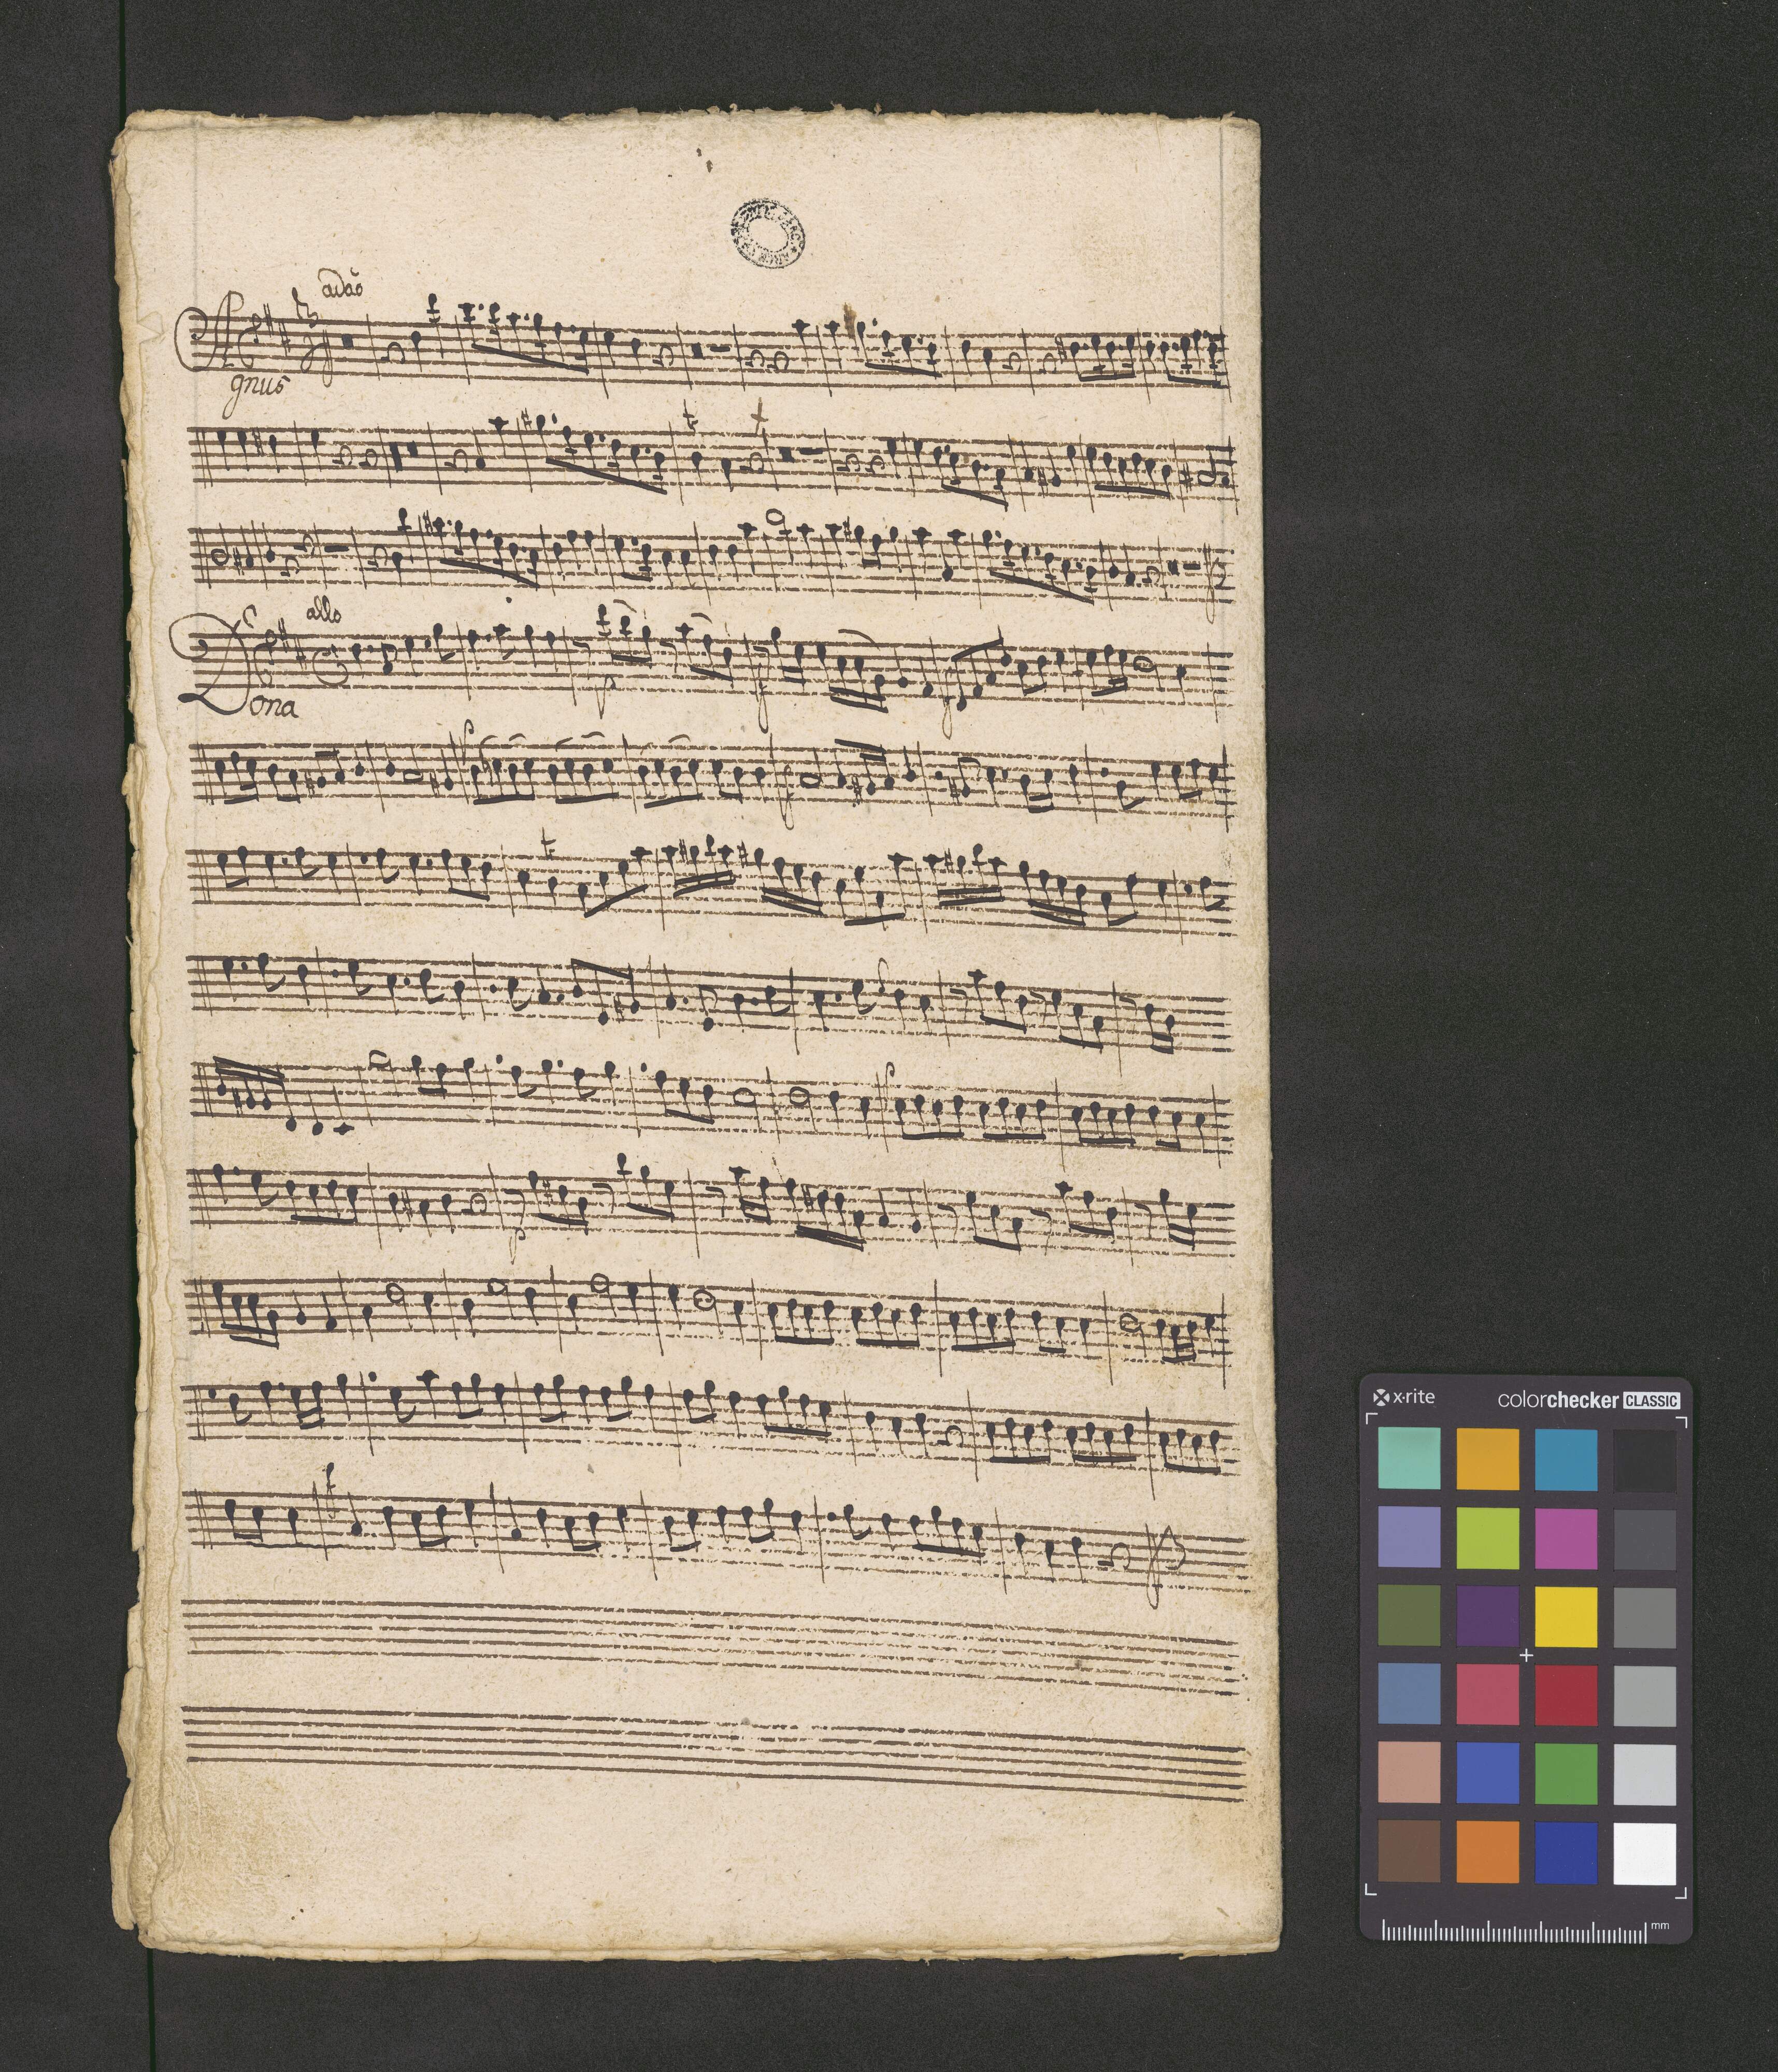 adão
Agnus
allo
Dona
x-rite
colorchecker CLASSIC
mm